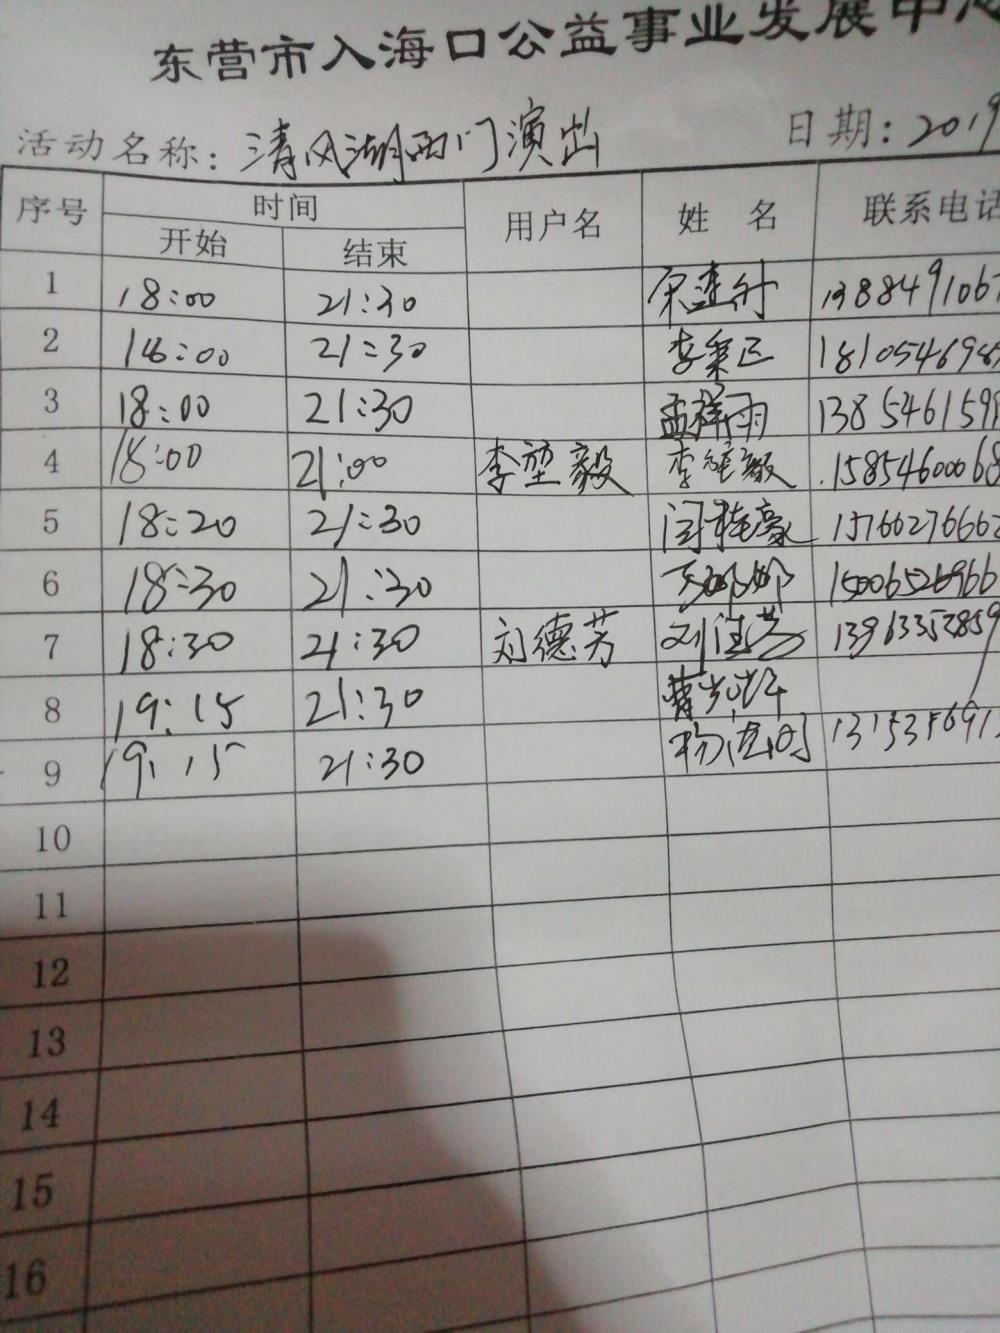 东营市入海口公益事业发展中心
活动名称: 清风湖西门演出 日期: 2019
序号 时间 用户名 姓 名 联系电话
开始 结束
1 18:00 21:30 1388491067
2 18:00 21:30 李秉正 1810546985
3 18:00 21:30 孟祥雨 1385461599
4 18:00 21:00 李堃毅 李堃毅 15854600068
5 18:20 21:30 闫桂豪 1576627666
6 18:30 21:30 15006526966
7 18:30 21:30 刘德芳 刘德芳 13963352859
8 19:15 21:30
9 19:15 21:30 131535691
10
11
12
13
14
15
16